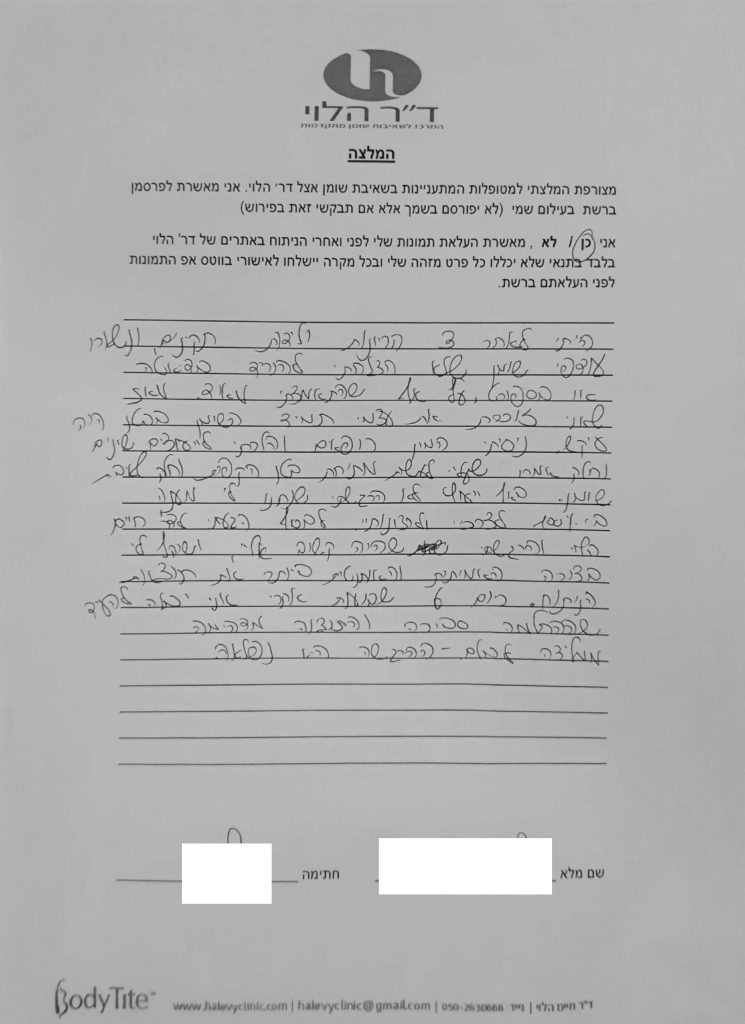 ד״ר הלוי
המרכז לשאיבות שומן מתקדמות
המלצה
מצורפת המלצתי למטופלות המתעניינות בשאיבת שומן אצל דר׳ הלוי. אני מאשרת לפרסמן
ברשת בעילום שמי (לא יפורסם בשמך אלא אם תבקשי זאת בפירוש)
אני כן / לא , מאשרת העלאת תמונות שלי לפני ואחרי הניתוח באתרים של דר' הלוי
בלבד בתנאי שלא יכללו כל פרט מזהה שלי ובכל מקרה יישלחו לאישורי בווטס אפ התמונות
לפני העלאתם ברשת.
הייתי לאחר 3 הריונות ולידות תקינים ונשארו
עודפי שומן שלא הצלחתי להוריד בדיאטה
או בספורט, על אף שהתאמצתי מאוד. מאז
שאני זוכרת את עצמי תמיד השומן בבטן היה
עיקש ניסיתי המון רופאים והלכתי לייעוצים שונים
וחלק אמרו שעלי לעשות מתיחת בטן היקפית וחלק שאיבת
שומן. באף ייעוץ לא הרגשתי שנתנו לי מענה
לצרכי ולרצונותיי. לבסוף הגעתי לדר' חיים
הלוי והרגשתי שהיה קשוב אליי, ושיקף לי
בצורה האמיתית והאותנטית ביותר את תוצאות
הניתוח. היום 6 שבועות אחרי אני יכולה להעיד
שההחלמה סבירה והתוצאה מדהימה
ממליצה לכולם - ההרגשה היא נפלאה
שם מלא
חתימה
BodyTite™
www.halevyclinic.com | halevyclinic@gmail.com | 050-2630666 ד״ר חיים הלוי | נייד